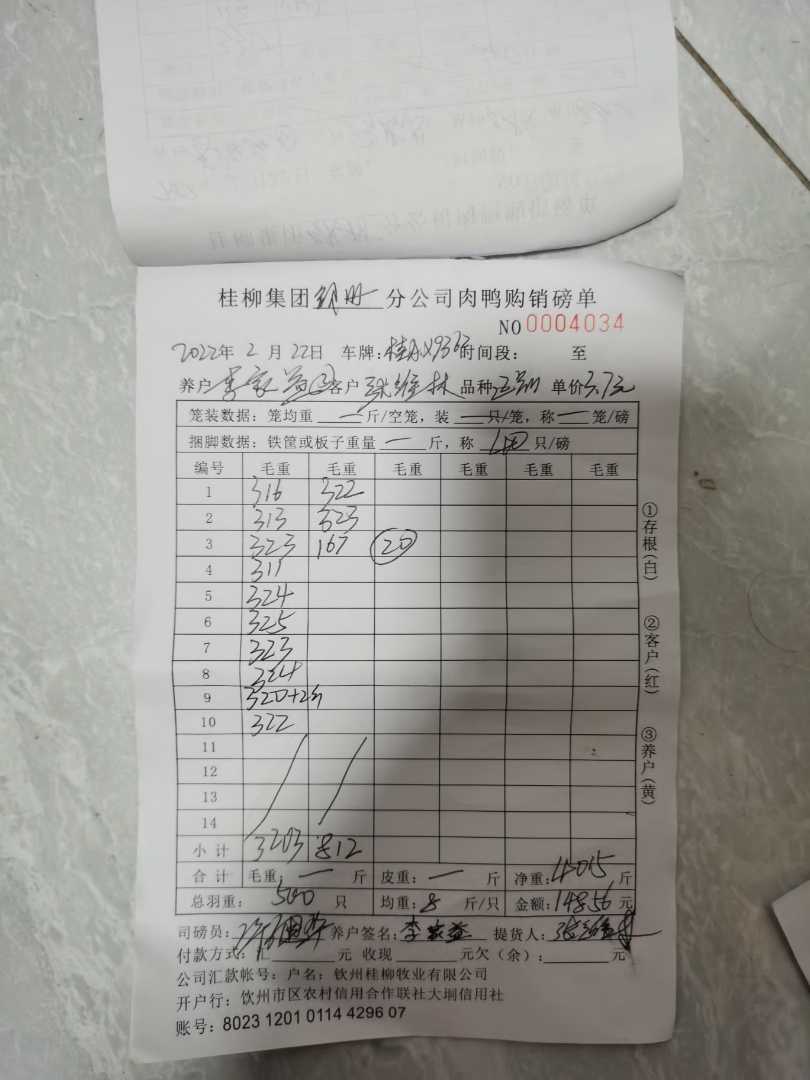 桂柳集团 分公司肉鸭购销磅单
NO 0004034
2022年 2 月 22日 车牌: 时间段: 至
养户 李家益 客户 张维林 品种 单价3.7元
笼装数据: 笼均重 — 斤/空笼, 装 — 只/笼, 称 — 笼/磅
捆脚数据: 铁筐或板子重量 — 斤, 称 40 只/磅
编号 毛重 毛重 毛重 毛重 毛重 毛重
1 316 322
2 313 323
3 323 167 20
4 311
5 324
6 325
7 323
8 324
9 320+2
10 322
11
12
13
14
小计 3203 812
合计 毛重: — 斤 皮重: — 斤 净重: 4015 斤
总羽重: 500 只 均重: 8 斤/只 金额: 14856 元
司磅员: 养户签名: 李家益 提货人: 张维林
付款方式: 汇 元 收现 元欠(余): 元
公司汇款帐号: 户名: 钦州桂柳牧业有限公司
开户行: 饮州市区农村信用合作联社大垌信用社
账号: 8023 1201 0114 4296 07
①存根(白)
②客户(红)
③养户(黄)